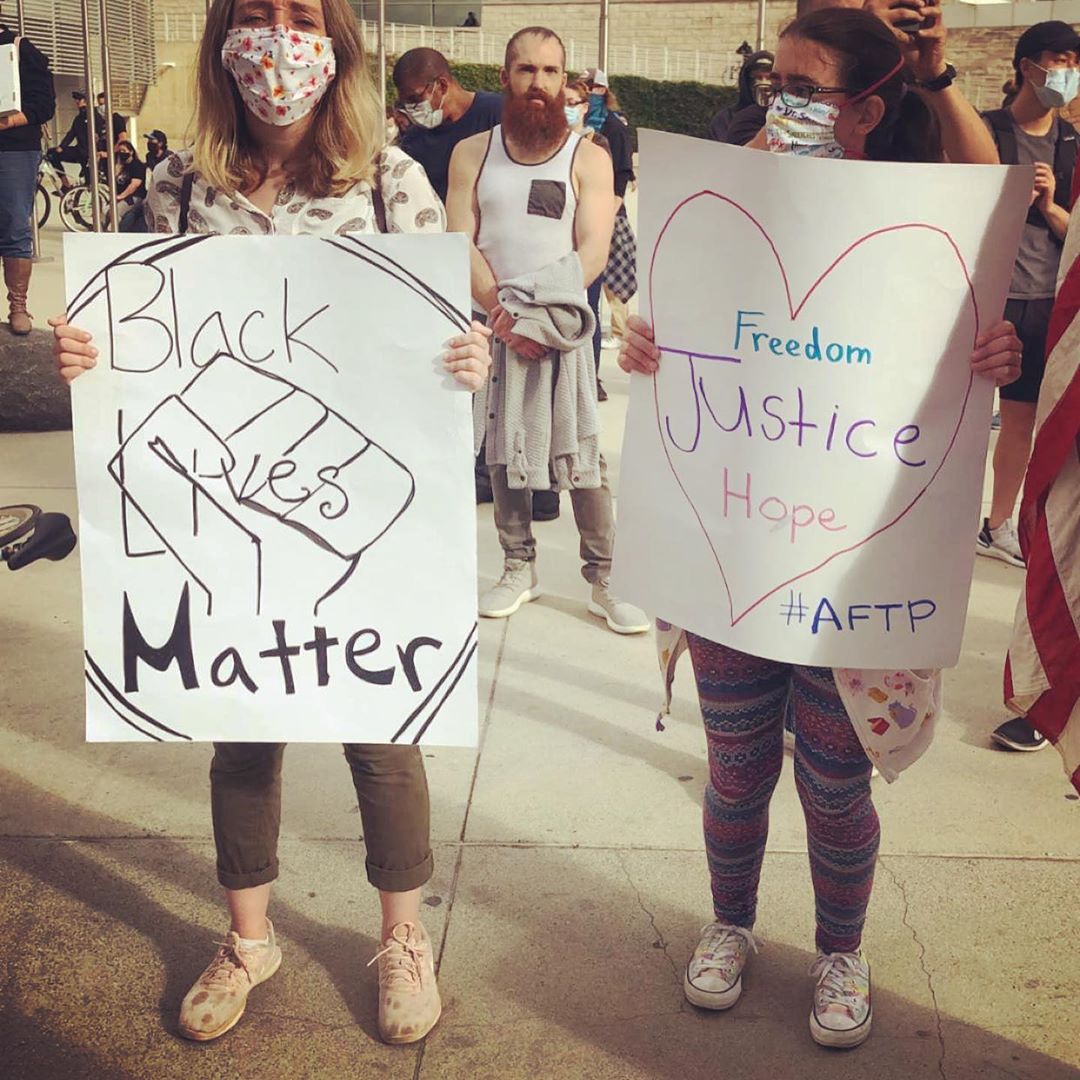 Black
Lives
Matter
Freedom
Justice
Hope
#AFTP